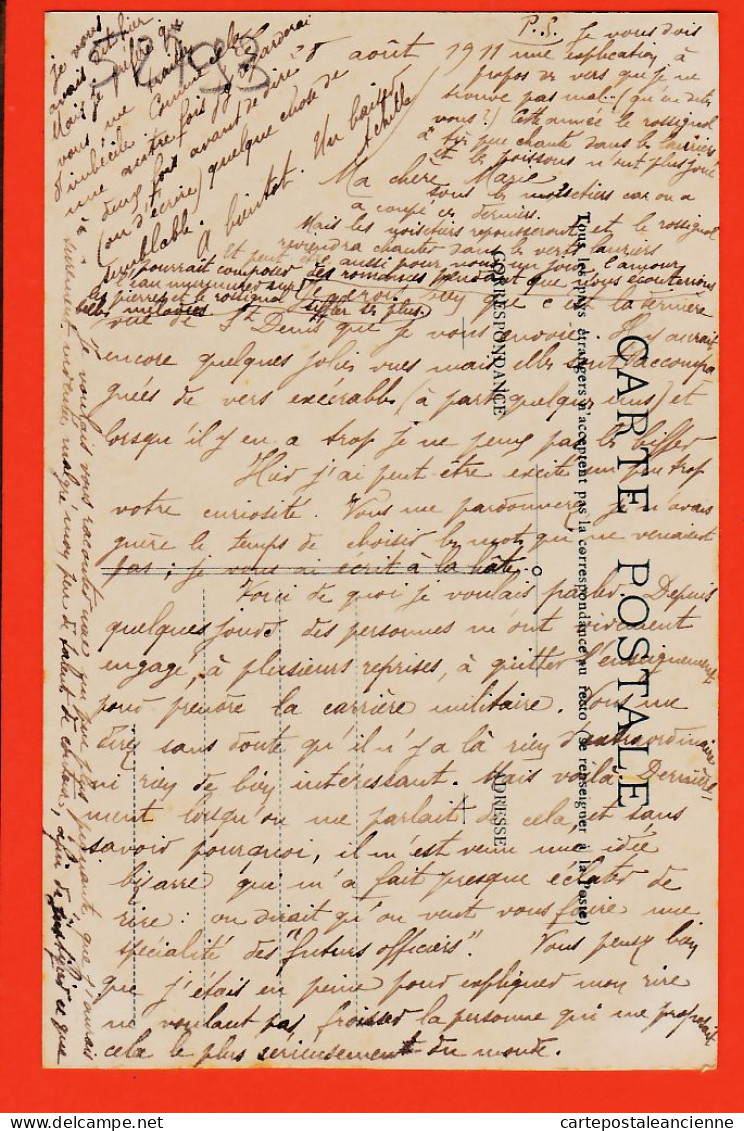 28 août 1911
Ma chère Marie
P.S. Je vous dois
une explication à
propos de vers que je ne
trouve pas mal... (qu'en dites
vous?) Cette année le rossignol
chante dans les lauriers
Et les poissons n'ont plus joué
sous les noisetiers car on a
coupé ces derniers.
Mais les noisetiers repousseront et le rossignol
reviendra chanter dans les verts lauriers
Et peut être aussi pour nous un jour, l'amour
pourrait composer des romances pendant que nous écouterions
l'eau murmurer sur
les pierres et le rossignol siffler ses plus
belles mélodies
que c'est la dernière
vue de St Denis que je vous envoie. Il y aurait
encore quelques jolies vues mais elles sont accompa
gnées de vers exécrables (à part quelques uns) et
lorsqu'il y en a trop je ne peux pas les biffer
Hier j'ai peut être excité un peu trop
votre curiosité. Vous me pardonnerez je n'avais
guère le temps de choisir les mots qui ne venaient
pas; je vous ai écrit à la hâte.
Voici de quoi je voulais parler. Depuis
quelques jours des personnes m'ont vivement
engagé, à plusieurs reprises, à quitter l'enseignement
pour prendre la carrière militaire. Vous me
direz sans doute qu'il n'y a là rien d'extraordinaire
ni rien de bien intéressant. Mais voilà. Dernière
ment lorsqu'on me parlait de cela, et sans
savoir pourquoi, il m'est venu une idée
bizarre qui m'a fait presque éclater de
rire: on dirait qu'on veut vous faire une
spécialité des "futurs officiers". Vous pensez bien
que j'étais en peine pour expliquer mon rire
ne voulant pas froisser la personne qui me proposait
cela le plus sérieusement du monde.
Je voulais vous raconter que
malgré mon peu de talent de conteur, afin de
Je vous
avais hier
Mais je
vous me
d'imbécile. Comme cela
une autre fois je regarderai
deux fois avant de dire
(ou d'écrire) quelque chose de
semblable.
A bientôt. Un baiser
Achille
CARTE POSTALE
Tous les pays étrangers n'acceptent pas la correspondance au recto (se renseigner à la Poste)
CORRESPONDANCE
ADRESSE
cartepostaleancienne
cartepostaleancienne.com